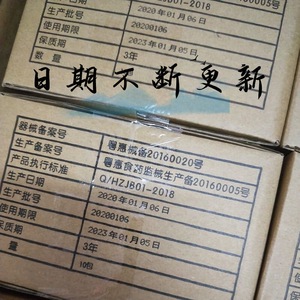 2018
20160005号
生产日期 2020年01月06日
生产批号 20200106
使用期限 2023年01月05日
保质期 3年
数量
日期不断更新
器械备案号 粤惠械备20160020号
生产备案号 粤惠食药监械生产备20160005号
产品执行标准 Q/HZJB01-2018
生产日期 2020年01月06日
生产批号 20200106
使用期限 2023年01月05日
保质期 3年
量 10包